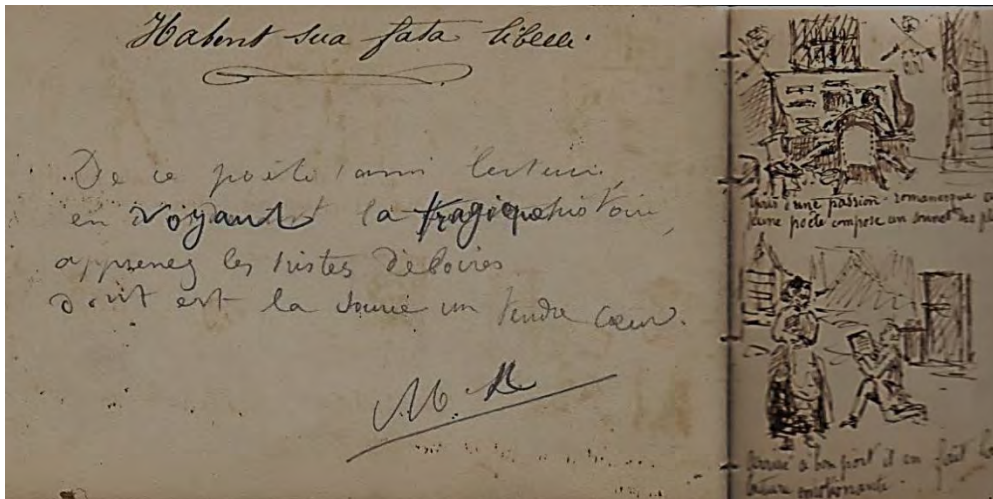 Habent sua fata libelli.
De ce poète, ami lecteur,
en voyant la tragique histoire,
apprenez les tristes déboires
dont est la source un tendre cœur.
M. R
d'une passion romanesque
jeune poète compose un sonnet des
Arrivé à bon port il en fait
lecture